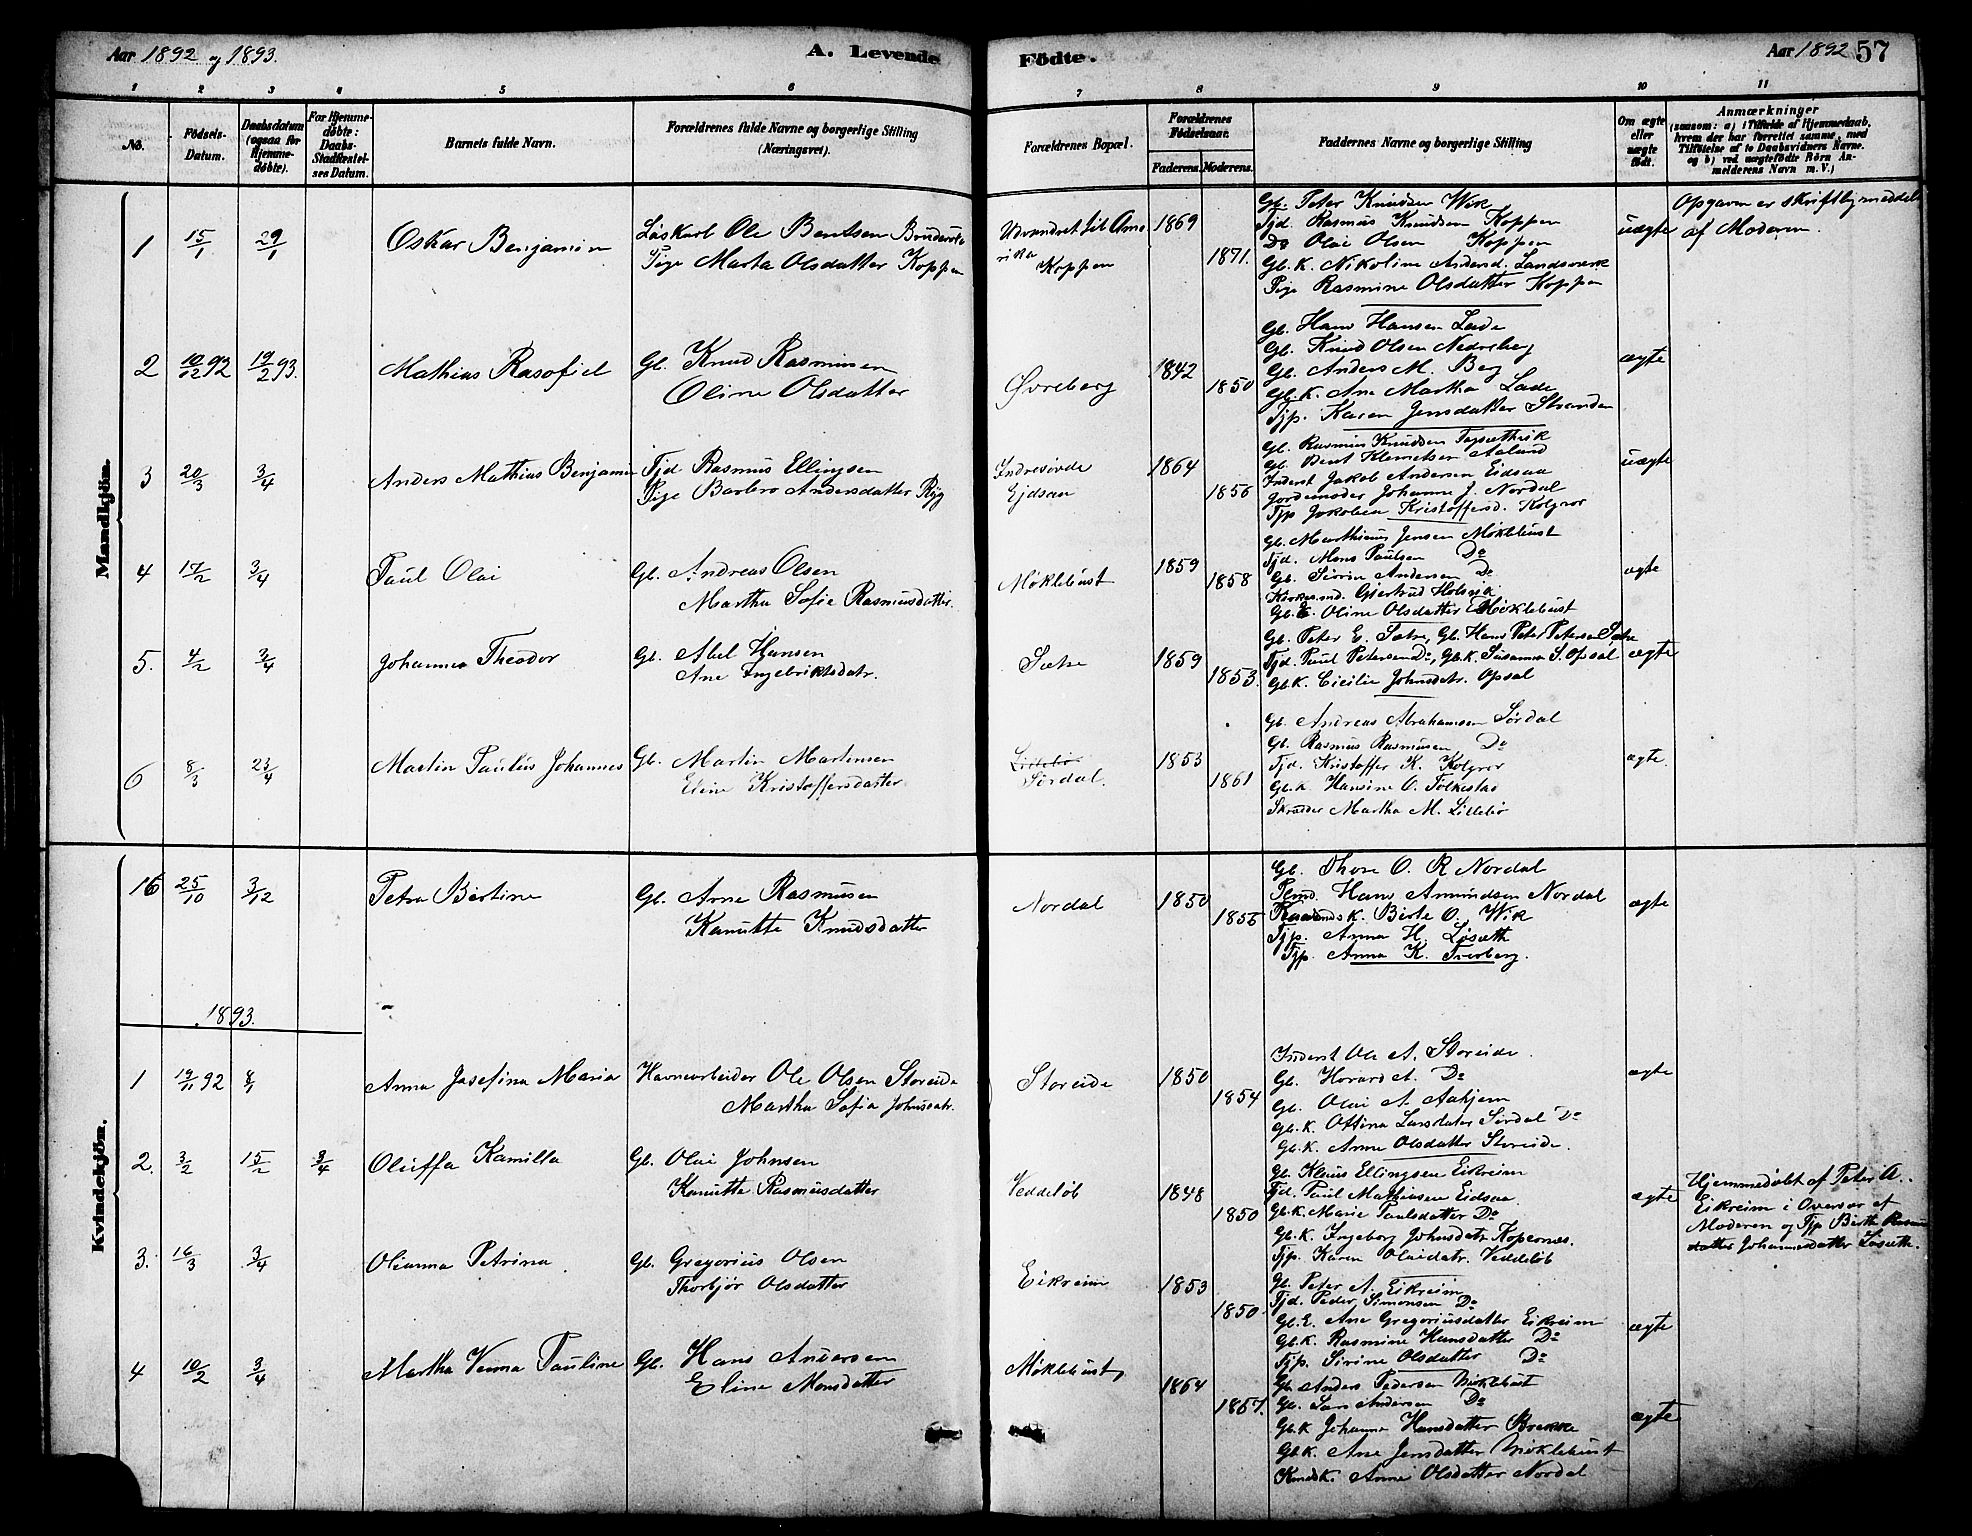 Aar 1892 og 1893.
A. Levende Födte.
Aar 1892 57
1 2 3 4 5 6 7 8 9 10 11
No.
Födsels-Datum.
Daabsdatum (ogsaa for Hjemme-döbte).
For Hjemme-döbte: Daabs-Stadfæstel-sens Datum.
Barnets fulde Navn.
Forældrenes fulde Navne og borgerlige Stilling (Næringsvei).
Forældrenes Bopæl.
Forældrenes Födselsaar.
Faderens. Moderens.
Faddernes Navne og borgerlige Stilling
Om ægte eller uægte födt.
Anmærkninger
(saasom: a) i Tilfælde af Hjemmedaab, hvem der har forrettet samme, med Tilföielse af to Daabsvidners Navne. og b) ved uægtefödte Börn An-melderens Navn m. V.)
Mandkjön.
1 15/1 29/1 Oskar Benjamin
Løskarl Ole Bentsen
Pige Marta Olsdatter Koppen
Udvandret til Ame
rika
Koppen
1869
1871.
Gb. Peter Knudsen Wik
Tjd. Rasmus Knudsen Koppen
Do Olai Olsen Koppen
Gb. K. Nikoline Andersd. Landsværk
Pige Rasmine Olsdatter Koppen
uægte
Opgaven er skriftlig meddelt
af Moderen.
2 10/12 92 19/2 93. Mathias Rasofiel
Gb. Knud Rasmusen
Oline Olsdatter
Øvreberg
1842
1850
Gb. Hans Hansen Lade
Gb. Knud Olsen Nedreberg
Gb. Anders M. Berg
Gb. K. Ane Martha Lade
Tjp. Karen Jensdatter Stranden
ægte
3 20/3 3/4 Anders Mathias Benjamin
Tjd Rasmus Ellingsen
Pige Barbro Andersdatter Ryg
Indresøvde
Ejdsaa
1864
1856
Gb. Rasmus Knudsen
Gb. Bent Klemetsen Aalund
Inderst Jakob Andersen Eidsaa
Jordemoder Johanne J. Nordal
Tjp Jakobea Kristoffersd. Kolgrov
uægte
4 17/2 3/4 Paul Olai
Gb. Andreas Olsen
Martha Sofie Rasmusdatter.
Møklebust
1859
1858
Gb. Marthinus Jensen Møklebust
Tjd. Mons Paulsen Do
Gb. Sivrin Andersen Do
Gjertrud Holsvik
Gb. E. Oline Olsdatter Møklebust
ægte
5. 4/2 3/4 Johannes Theodor
Gb. Abel Hansen
Ane Ingebriktsdatr.
Sætre
1859
1853.
Gb. Peter E. Sætre, Gb. Hans Peter Petersen Sætre
Tjd. Paul Petersen Do, Gb. K. Susanna S. Opsal
Gb. K. Cicilie Johnsdatr. Opsal
ægte
6 8/3 23/4 Martin Paulus Johannes
Gb. Martin Martinsen
Eline Kristoffersdatter
Lillebø
Sørdal.
1853
1861
Gb. Andreas Abrahamsen Sørdal
Gb. Rasmus Rasmusen Do
Tjd. Kristoffer K. Kolgrov
Gb. K. Hansine O. Folkestad
Skrædder Martha M. Lillebø
ægte.
Kvindekjön.
16 25/10 3/12 Petra Bertine
Gb. Arne Rasmusen
Kanutte Knudsdatter
Nordal
1850
1855
Gb. Thore O. R Nordal
Hans Amundsen Nordal
Birte O. Wik
Tjp. Anna H. Løsæth
Tjp. Anna K. Tverberg.
ægte
1893.
1 19/11 92 8/1 Anna Josefina Maria
Havnearbeider Ole Olsen Storeide
Martha Sofia Johnsdatr.
Storeide
1850
1854
Inderst Ole A. Storeide.
Gb. Hovard A. Do
Gb. Olai A. Aahjem
Gb. K. Ottina Larsdatter Sørdal Do
Gb. K. Anne Olsdatter Storeide.
ægte
2. 3/2 15/2 3/4 Oluffa Kamilla
Gb. Olai Johnsen
Kanutte Rasmusdatter
Veddeløb
1848
1850
Gb. Klaus Ellingsen Eikreim
Tjd. Paul Mathiasen Eidsaa
Gb. K. Marie Paulsdatter Do
Gb. K. Ingeborg Johnsdatr. Kopernæs.
Tjp. Karen Olaidatr. Veddeløb
ægte
Hjemmedøbt af Peter A.
Eikreim i Overvær af
Moderen og Tjp Birthe Rasmus
datter Johannesdatter Løsæth.
3. 16/3 3/4 Olianna Petrina
Gb. Gregorius Olsen
Thorbjør Olsdatter
Eikreim
1853
1850.
Gb. Peter A. Eikreim
Tjd. Peder Simonsen Do
Gb. E. Ane Gregoriusdatter Eikreim
Gb. K. Rasmine Hansdatter Do
Tjp. Sivine Olsdatter Do
ægte
4 10/2 3/4 Martha Verma Pauline
Gb. Hans Andersen
Eline Monsdatter
Møklebust,
1864
1867.
Gb. Anders Pedersen Møklebust
Gb. Lars Andersen Do
Gb. K Johanna Hansdatter Brekke
Gb. K. Ane Jensdatter Møklebust
Kmdk. Anne Olsdatter Nordal
ægte